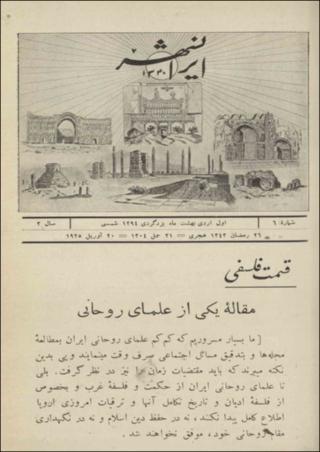 ایرانشهر
۱۳۴۰
شماره: ۶
اول اردی بهشت ماه یزدگردی ۱۲۹۴ شمسی
سال ۳
۲۶ رمضان ۱۳۴۳ هجری = ۳۱ حمل ۱۳۰۴ = ۲۰ آوریل ۱۹۲۵
قسمت فلسفی
مقالهٔ یکی از علمای روحانی
[ ما بسیار مسروریم که کم کم علمای روحانی ایران بمطالعهٔ
مجله‌ها و بتدقیق مسائل اجتماعی صرف وقت مینمایند و پی بدین
نکته میبرند که باید مقتضیات زمان را نیز در نظر گرفت. بلی
تا علمای روحانی ایران از حکمت و فلسفهٔ غرب و بخصوص
از فلسفهٔ ادیان و تاریخ تکامل آنها و ترقیات امروزی اروپا
اطلاع کامل پیدا نکنند، نه در حفظ دین اسلام و نه در نگهداری
مقام روحانی خود، موفق نخواهند شد.